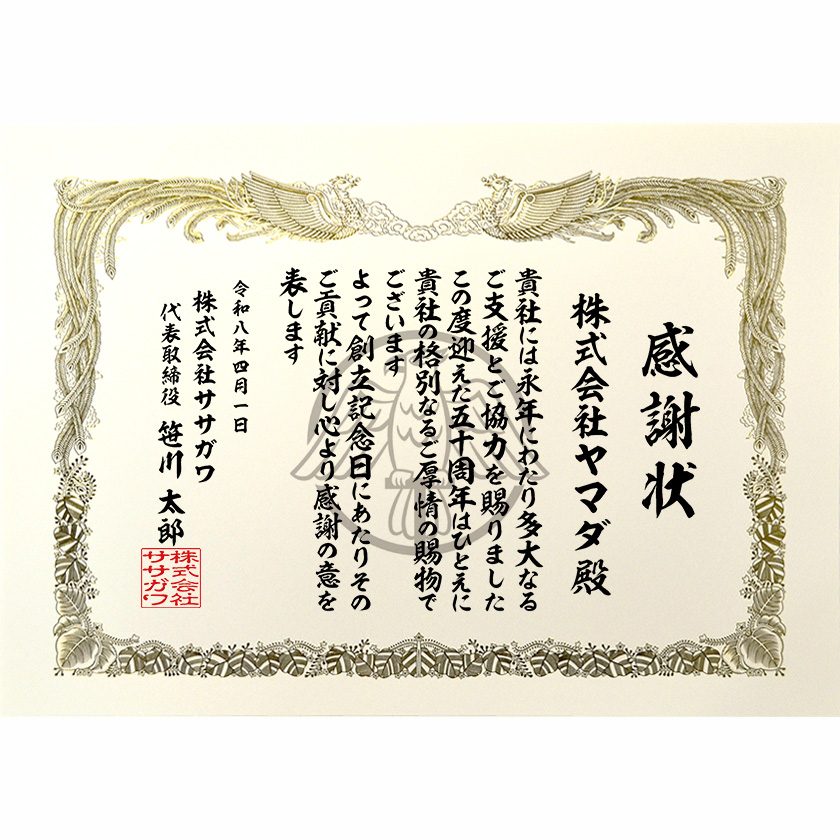 感謝状
株式会社ヤマダ殿
貴社には永年にわたり多大なる
ご支援とご協力を賜りました
この度迎えた五十周年はひとえに
貴社の格別なるご厚情の賜物で
ございます
よって創立記念日にあたりその
ご貢献に対し心より感謝の意を
表します
令和八年四月一日
株式会社ササガワ
代表取締役 笹川 太郎
株式会社
ササガワ